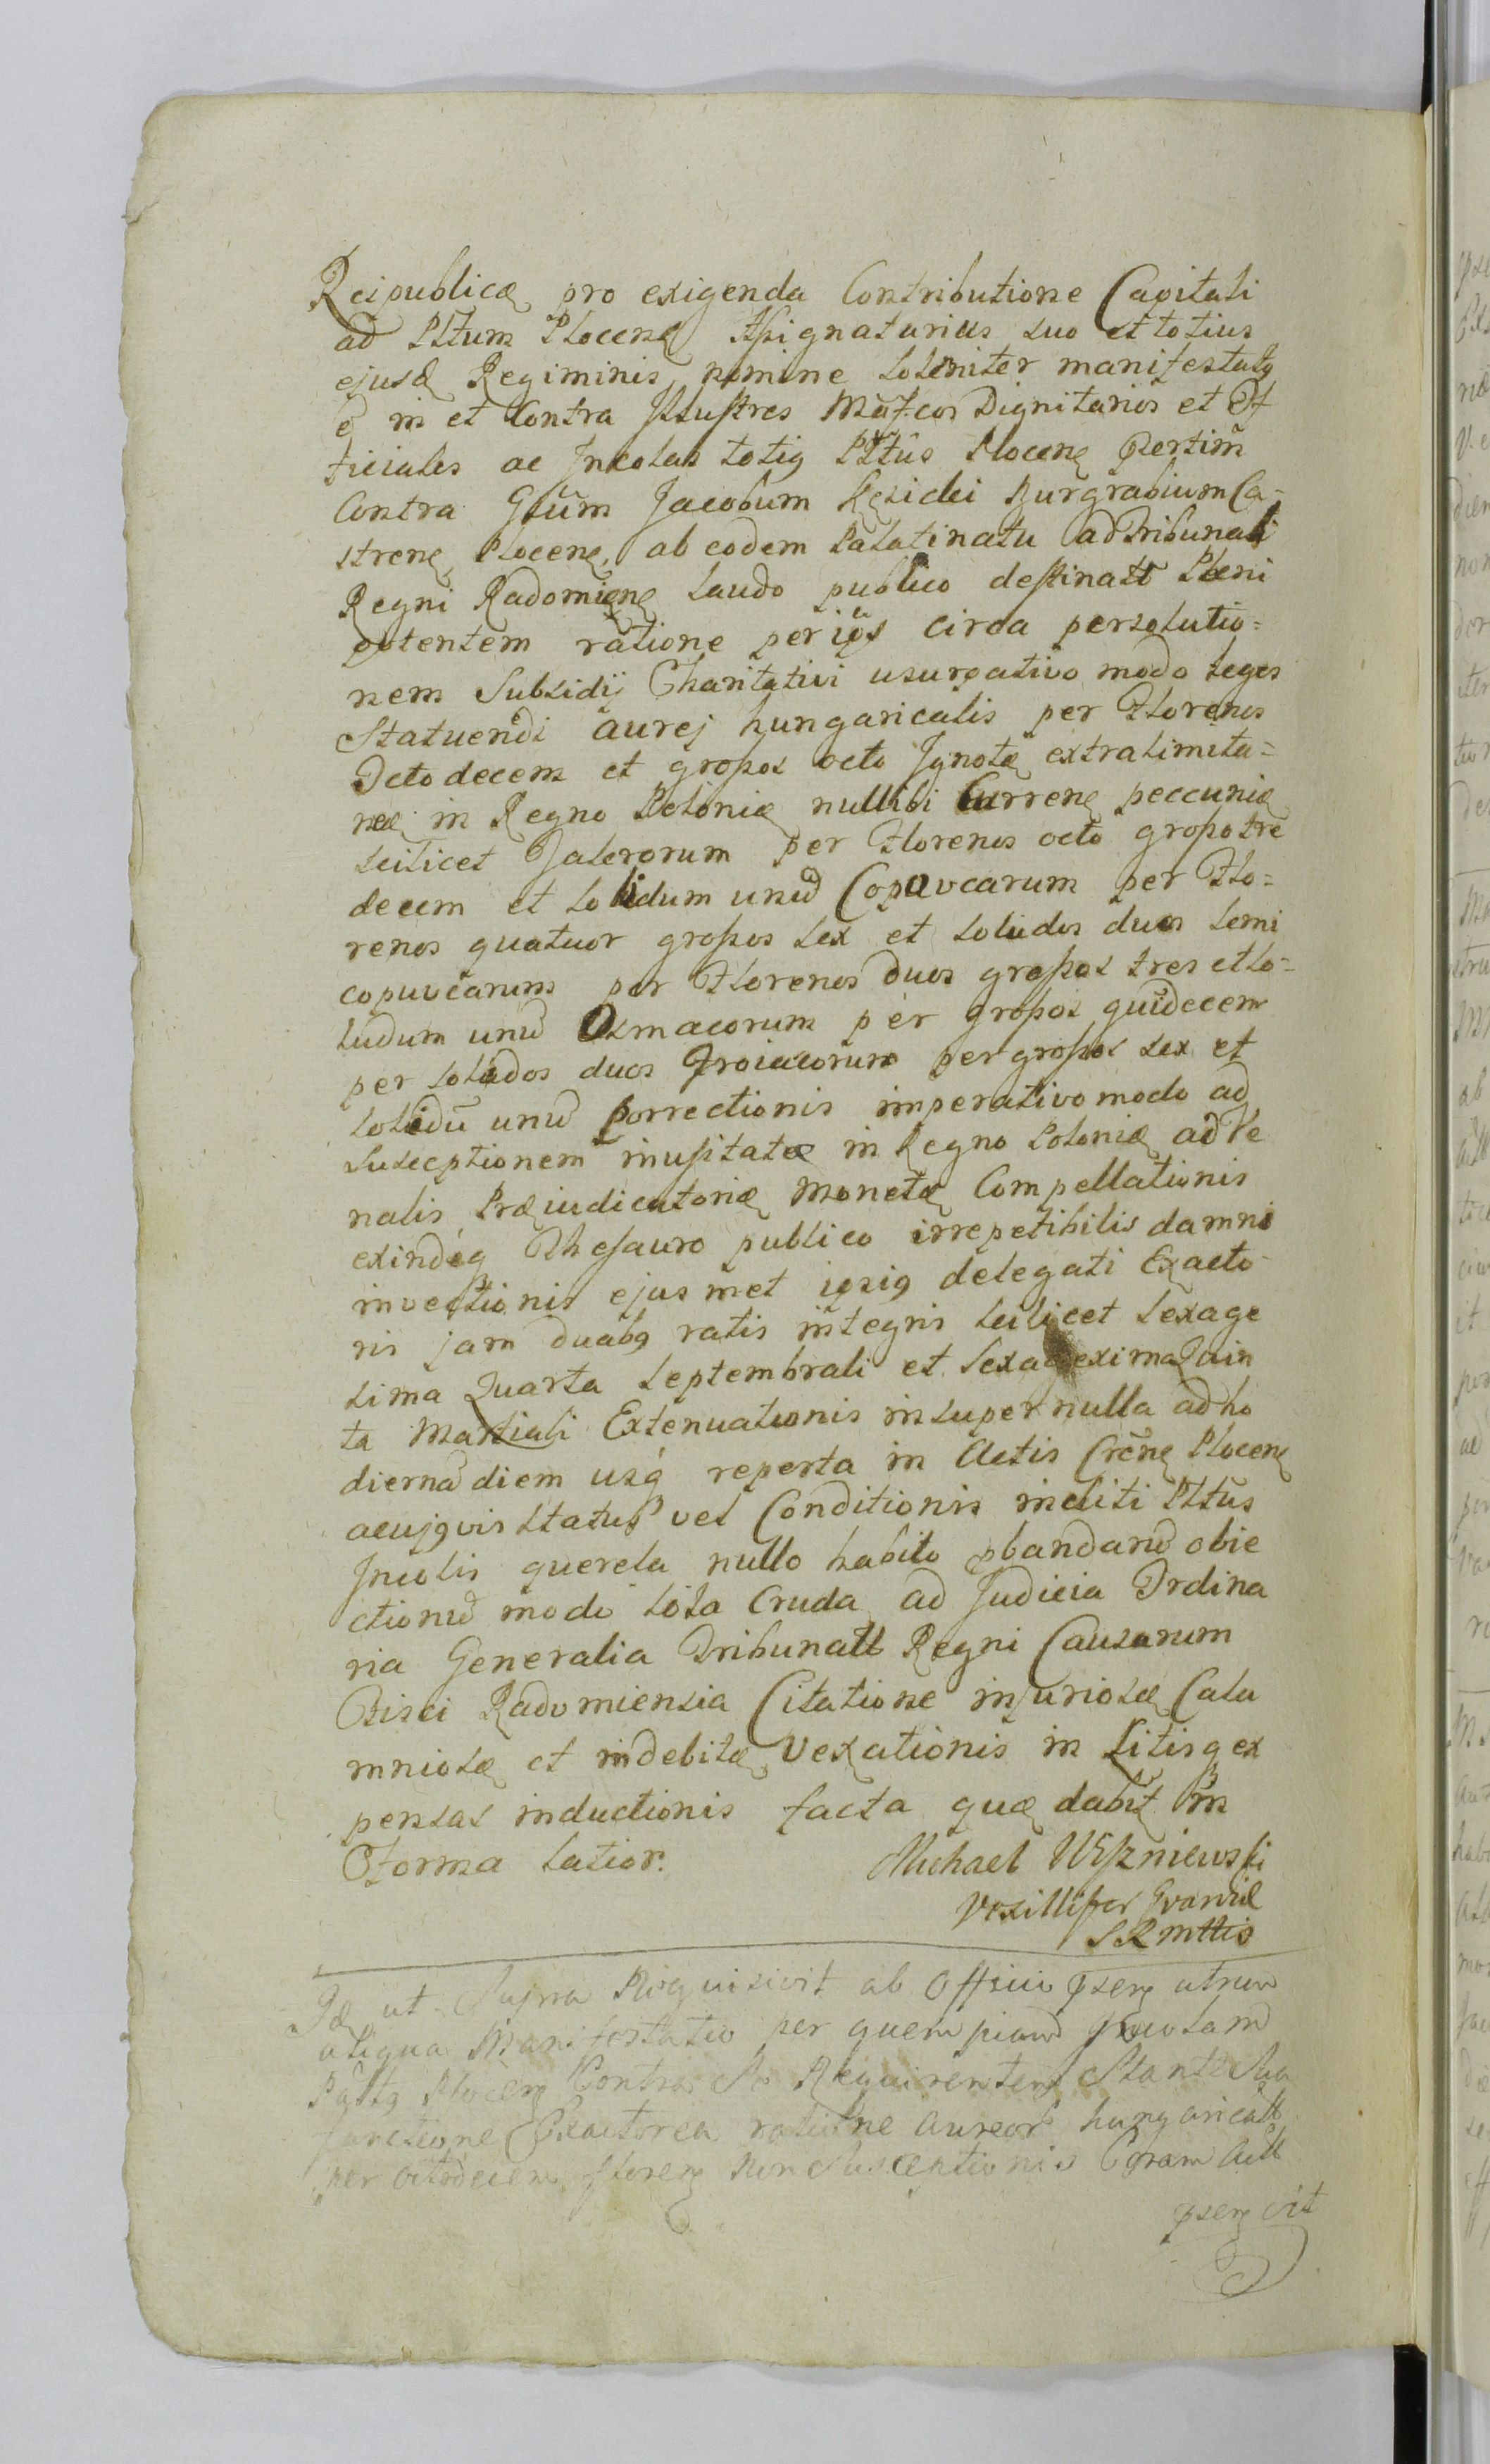 Reipublicæ pro exigenda Contributione Capitali
ad Pltum Plocenę Assignatarius suo et totius
ejusđ Regiminis nomine soleniter manifestatꝯ
ę in et Contra Illustres Mãfcos Dignitarios et Of
ficiales ac Incolas totiꝯ Pltûs Plocenę pertim̃
Contra Gsũm Jacobum Kęsicki Burgrabium Ca-
strenę Plocenę, ab eodem Palatinatu ad Tribunali
Regni Radomienę Laudo publico destinatt Pleni
potentem ratione per ip̃os circa persolutio=
nem Subsidij Charitativi usurpativo modo leges
Statuendi aurej hungaricalis per Florenos
Octodecem et grossos octo Ignotæ extralimita=
neæ in Regno Poloniæ nullibi Currenę peccuniæ
scilicet Talerorum per Florenos octo grosso tre
decem et solidum unũ Copuvcarum per Flo=
renos quatuor grossos sex et solidos duos semi
copuvcarum per Florenos duos grossos tres et so=
lidum unũ Osmacorum per grossos quĩdecem
per solidos duos Troiacorum per grossos sex et
solidũ unũ porrectionis imperativo modo ad
susceptionem inusitatæ in Regno Poloniæ adVe
nalis Præiudicatoriæ Monetæ Compellationis
exindéq Thesauro publico irrepetibilis damni
invectionis ejusmet ipsiꝯ delegati Exacto-
ris jam duabꝯ ratis integris scilicet sexage
sima Quarta septembrali et sexagexima Quin
ta Martiali Extenuationis insuper nulla ad ho
diernã diem usq́ reperta in Actis Crẽnę Plocenę
acujꝯvis status vel Conditionis incliti Pltûs
Incolis querela nullo habito pbandarũ obie
ctionũ modo sola Cruda ad Judicia Ordina
ria Generalia Tribunatt Regni Causarum
Fisci Radomiensia Citatione injuriosæ Calu
mniosæ et indebitæ Vexationis in Litisq ex
pensas inductionis facta quæ dabit̃ in
Forma latior.
Michael Wiszniewski
Vexillifer Gvardiæ
S R Mttis
Idę ut Supra Requisivit ab Officio psenę utrum
aliqua Manifestatio per quempiam Incolam
Paltꝯ Plocenę Contra Se Requirentem Stante Sua
functione Exactorea ratione aureorũ hungaricatt
per octodecem florenę non Susceptionis Coram Actt
psenę sit